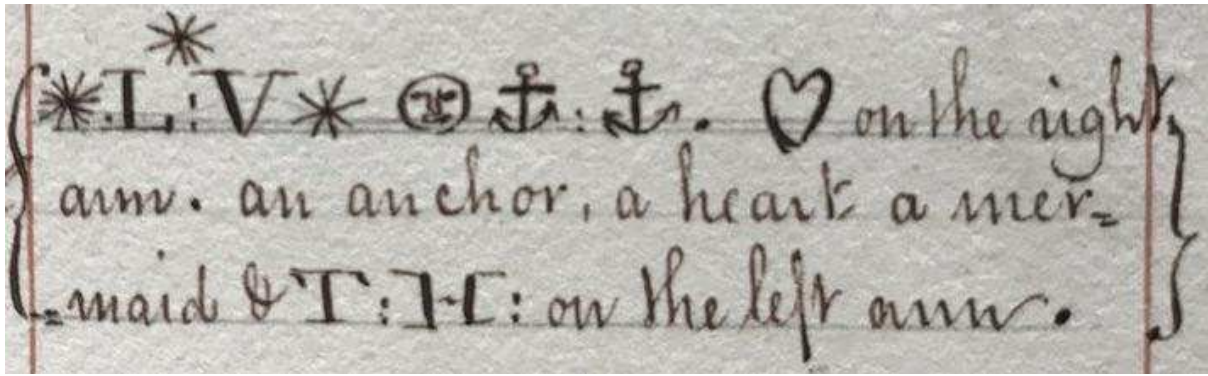 L:V : . on the right
arm. an anchor, a heart a mer=
=maid & T:H: on the left arm.